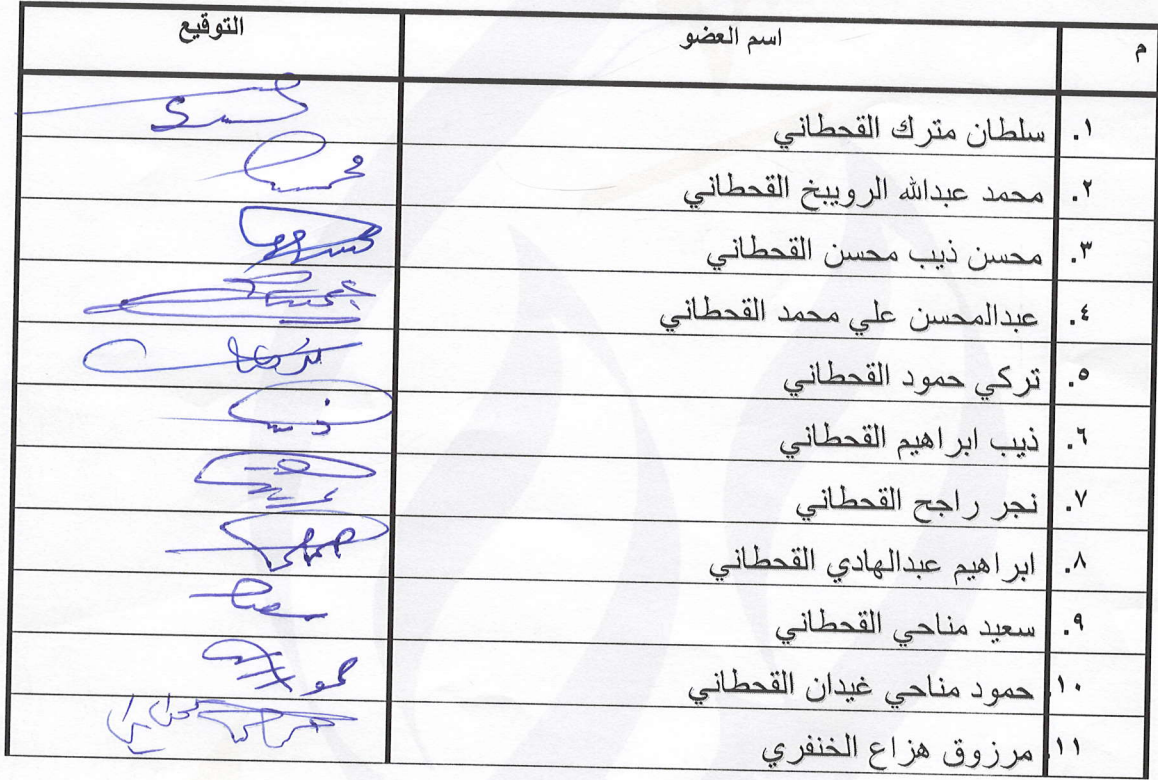 م اسم العضو التوقيع
١. سلطان مترك القحطاني
٢. محمد عبدالله الرويبخ القحطاني
٣. محسن ذيب محسن القحطاني
٤. عبدالمحسن علي محمد القحطاني
٥. تركي حمود القحطاني
٦. ذيب ابراهيم القحطاني
٧. نجر راجح القحطاني
٨. ابراهيم عبدالهادي القحطاني
٩. سعيد مناحي القحطاني
١٠. حمود مناحي غيدان القحطاني
١١. مرزوق هزاع الخنفري